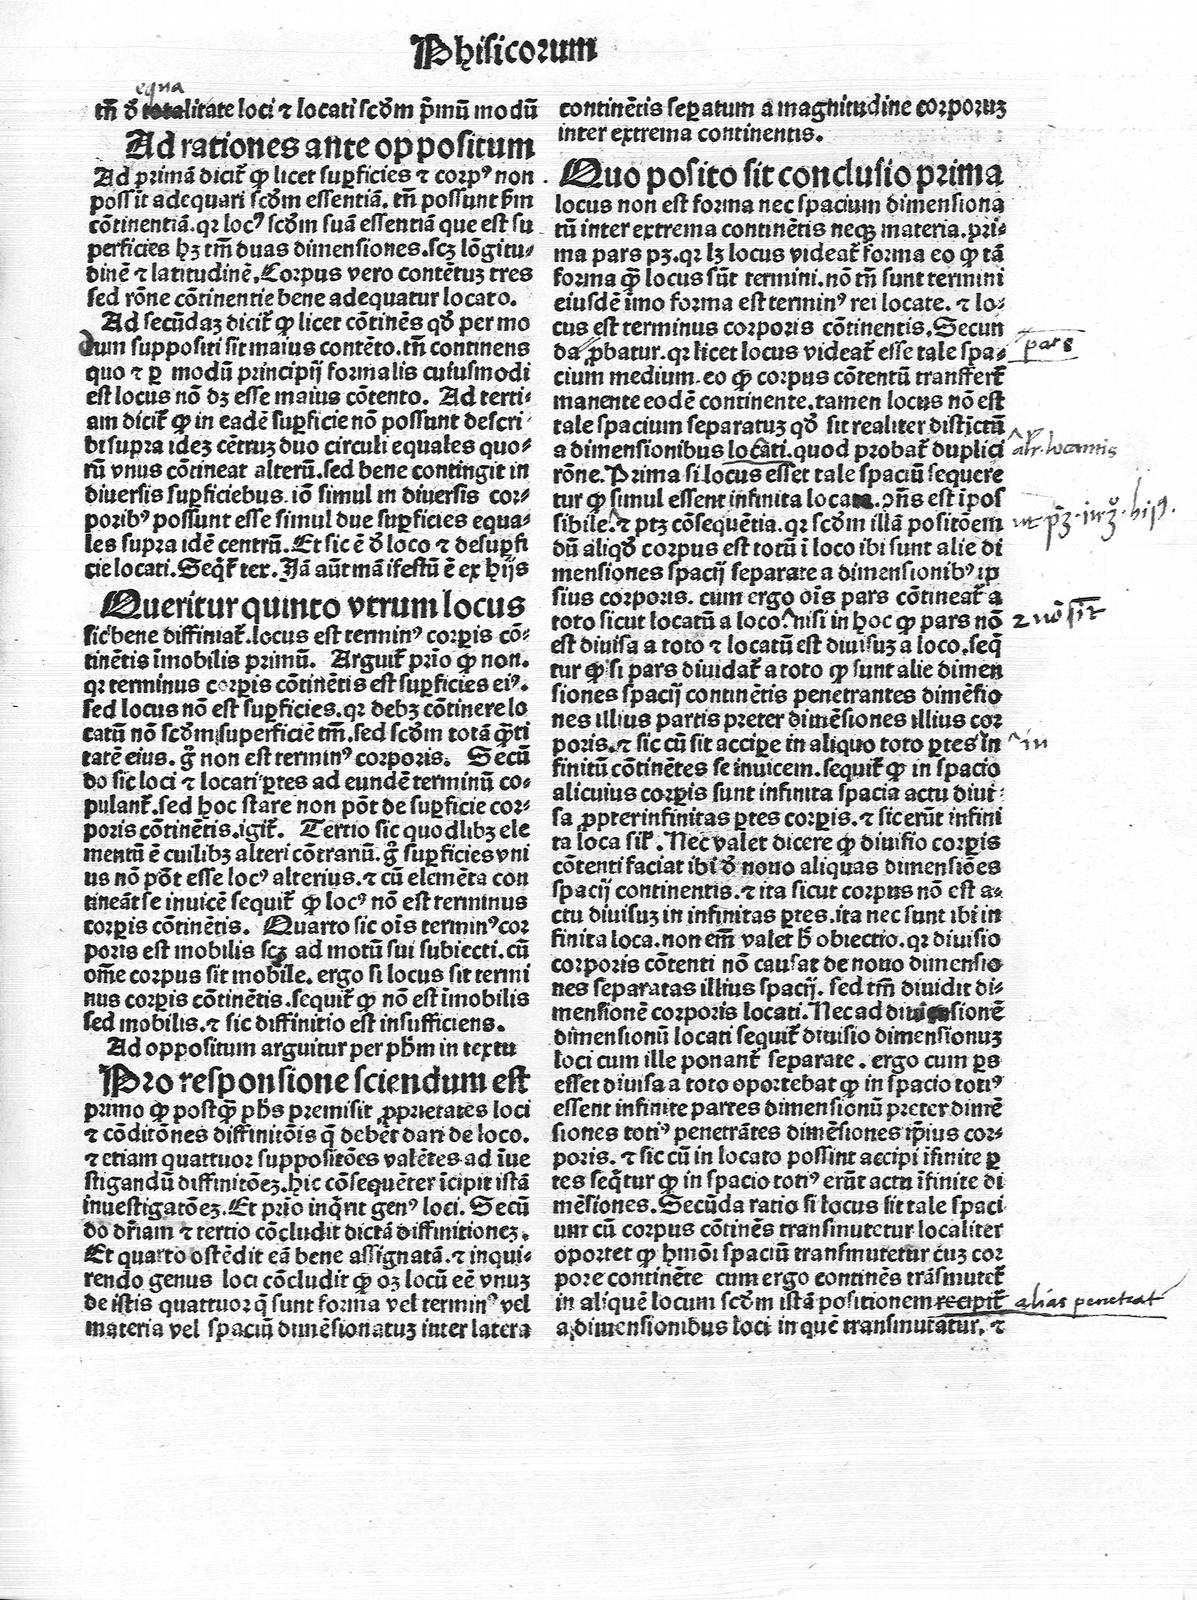 Phisicorum
equa
tm̄ ð totalitate loci ⁊ locati scðm p̄mū modū
Ad rationes ante oppositum
Ad primā dicit̄ ꝙ licet suꝑficies ⁊ corpꝰ non
poss̄it adequari scðm essentiā. tn̄ possunt p̄m
cōtinentiā. qꝛ locꝰ scðm suā essentiā que est su
perficies hꝫ tm̄ duas dimensiones. scꝫ lōgitu⸗
dinē ⁊ latitudinē. Corpus vero contētuꝫ tres
sed rōne cōtinentie bene adequatur locato.
Ad secūdaꝫ dicit̄ ꝙ licet cōtinēs qð per mo
dum suppositi sit maius contēto. tn̄ continens
quo ⁊ ꝑ modū principij formalis cuiusmodi
est locus nō dꝫ esse maius cōtento. Ad terti⸗
am dicit̄ ꝙ in eadē suꝑficie nō possunt descri
bi supra ideꝫ cētruꝫ duo circuli equales quo⸗
rū vnus cōtineat alterū. sed bene contingit in
diuersis suꝑficiebus. iō simul in diuersis cor⸗
poribꝰ possunt esse simul due suꝑficies equa⸗
les supra idē centrū. Et sic ē ð loco ⁊ de suꝑfi
cie locati. Seqt̄ tex. Jā aūt manifestū ē ex hijs
Queritur quinto vtrum locus
sic bene diffiniat̄. locus est terminꝰ corꝑis cō⸗
tinētis īmobilis primū. Arguit̄ prīo ꝙ non.
qꝛ terminus corꝑis cōtinētis est suꝑficies eiꝰ.
sed locus nō est suꝑficies. qꝛ debꝫ cōtinere lo
catū nō scðm superficiē tm̄. sed scðm totā q̄ti
tatē eius. g̊ non est terminꝰ corporis. Secū
do sic loci ⁊ locati ꝑtes ad eundē terminū co⸗
pulant̄. sed hoc stare non pōt de suꝑficie cor⸗
poris cōtinētis. igit̄. Tertio sic quodlibꝫ ele
mentū ē cuilibꝫ alteri cōtrariū. g̊ suꝑficies vni
us nō pōt esse locꝰ alterius. ⁊ cū elemēta con
tineāt se inuicē sequit̄ ꝙ locꝰ nō est terminus
corꝑis cōtinētis. Quarto sic oīs terminꝰ cor
poris est mobilis scꝫ ad motū sui subiecti. cū
om̄e corpus sit mobile. ergo si locus sit termi
nus corꝑis cōtinētis. sequit̄ ꝙ nō est īmobilis
sed mobilis. ⁊ sic diffinitio est insufficiens.
Ad oppositum arguitur per pħm in textu
Pro responsione sciendum est
primo ꝙ postq̄ꝫ pħs premisit ꝓprietates loci
⁊ cōditōnes diffinitōis q̄ debēt dari de loco.
⁊ etiam quattuor suppositōes valētes ad īue
stigandū diffinitōeꝫ. hic cōsequēter īcipit istā
inuestigatōeꝫ. Et prīo inq̄rit genꝰ loci. Secū
do dr̄iam ⁊ tertio cōcludit dictā diffinitioneꝫ.
Et quarto ostēdit eā bene assignatā. ⁊ inqui⸗
rendo genus loci cōcludit ꝙ oꝫ locū eē vnuꝫ
de istis quattuor q̄ sunt forma vel terminꝰ vel
materia vel spaciū dimēsionatuꝫ inter latera
continētis seꝑatum a magnitudine corporuꝫ
inter extrema continentis.
Quo posito sit conclusio prima
locus non est forma nec spacium dimensiona
tū inter extrema continētis neqꝫ materia. pri⸗
ma pars pꝫ. qꝛ lꝫ locus videat̄ forma eo ꝙ tā
forma q̄ꝫ locus sūt termini. nō tn̄ sunt termini
eiusdē imo forma est terminꝰ rei locate. ⁊ lo⸗
cus est terminus corporis cōtinentis. Secun
da ꝓbatur. qꝛ licet locus videat̄ esse tale spa⸗
pars
cium medium. eo ꝙ corpus cōtentū transfert̄
manente eodē continente. tamen locus nō est
tale spacium separatuꝫ qð sit realiter distīctū
a dimensionibus locāti. quod probat̄ duplici
alr̄. locantis
rōne. Prima si locus esset tale spaciū sequere
tur ꝙ simul essent infinita loca. ꝯn̄s est īpos
sibile. ⁊ ptꝫ cōsequētia. qꝛ scðm illā positōem
dū aliqð corpus est totū ī loco ibi sunt alie di
mensiones spacij separate a dimensionibꝰ ip
sius corporis. cum ergo oīs pars cōtineat̄ a
toto sicut locatū a loco. nisi in hoc ꝙ pars nō
⁊ nō sit
est diuisa a toto ⁊ locatū est diuisuꝫ a loco. seq̄
tur ꝙ si pars diuidat̄ a toto ꝙ sunt alie dimen
siones spacij continētis penetrantes dimēsio
nes illius partis preter dimēsiones illius cor
poris. ⁊ sic cū sit accipe in aliquo toto ꝑtes in
in
finitū cōtinētes se inuicem. sequit̄ ꝙ in spacio
alicuius corꝑis sunt infinita spacia actu diui⸗
sa ꝓpter infinitas ꝑtes corꝑis. ⁊ sic erūt infini
ta loca sil̄. Nec valet dicere ꝙ diuisio corꝑis
cōtenti faciat ibi ð nouo aliquas dimensiōes
spacij continentis. ⁊ ita sicut corpus nō est a⸗
ctu diuisuꝫ in infinitas ꝑtes. ita nec sunt ibi in
finita loca. non em̄ valet h̄ obiectio. qꝛ diuisio
corporis cōtenti nō causat de nouo dimensio
nes separatas illius spacij. sed tm̄ diuidit di⸗
mensionē corporis locati. Nec ad diuisionē
dimensionū locati sequit̄ diuisio dimensionuꝫ
loci cum ille ponant̄ separate. ergo cum ꝑs
esset diuisa a toto oportebat ꝙ in spacio totiꝰ
essent infinite partes dimensionū preter dimē
siones totiꝰ penetrātes dimēsiones ip̄ius cor⸗
poris. ⁊ sic cū in locato possint accipi īfinite ꝑ
tes seq̄tur ꝙ in spacio totiꝰ erūt actu īfinite di
mēsiones. Secūda ratio si locus sit tale spaci
um cū corpus cōtinēs transmutetur localiter
oportet ꝙ hmōi spaciū transmutetur cuꝫ cor
pore continēte cum ergo continēs trāsmutet̄
in aliquē locum scðm istā positionem recipit̄
alias penetrat
a dimensionibus loci in quē transmutatur. ⁊